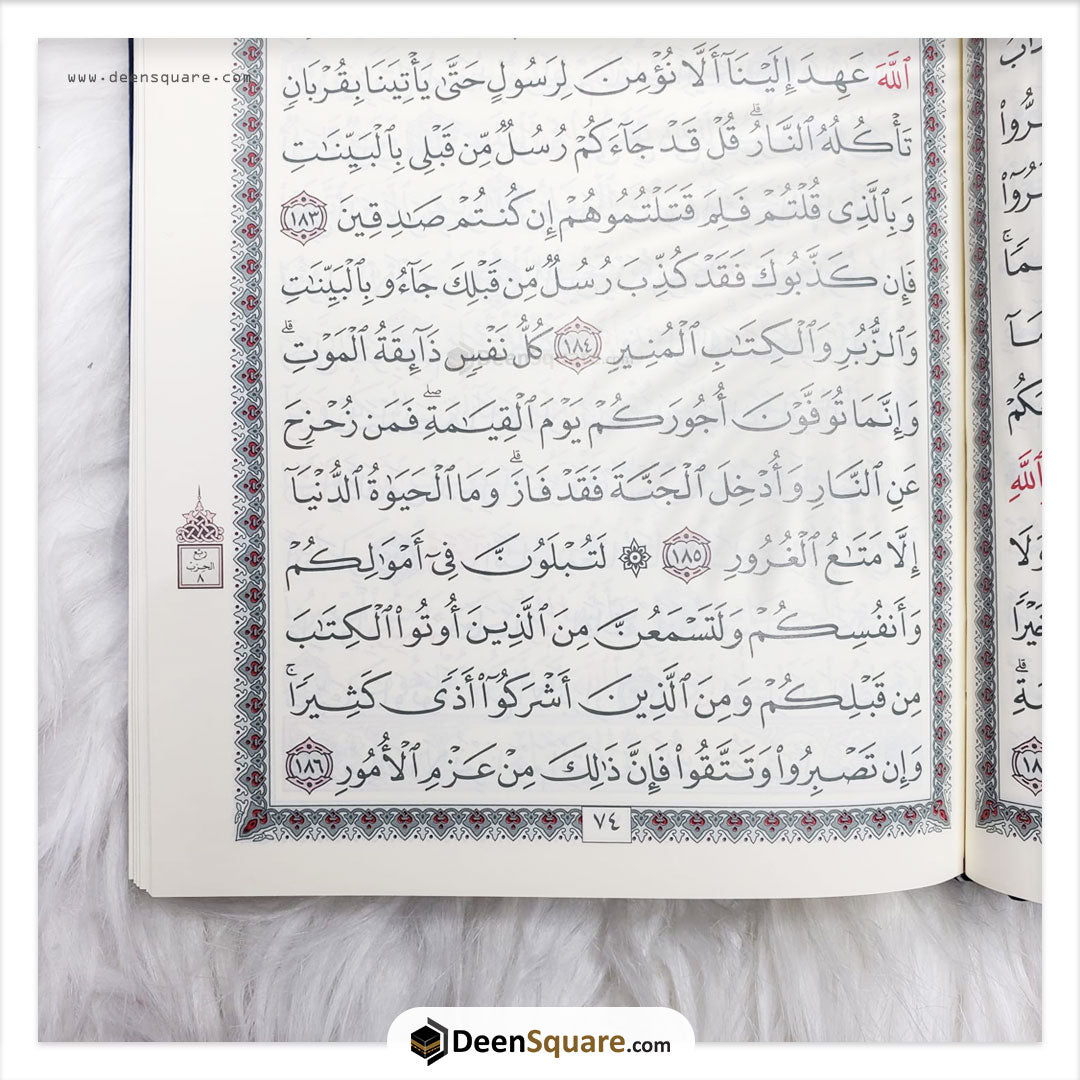 www.deensquare.com
ٱللَّهَ عَهِدَ إِلَيْنَآ أَلَّا نُؤْمِنَ لِرَسُولٍ حَتَّىٰ يَأْتِيَنَا بِقُرْبَانٍ
تَأْكُلُهُ ٱلنَّارُ ۗ قُلْ قَدْ جَآءَكُمْ رُسُلٌ مِّن قَبْلِى بِٱلْبَيِّنَٰتِ
وَبِٱلَّذِى قُلْتُمْ فَلِمَ قَتَلْتُمُوهُمْ إِن كُنتُمْ صَٰدِقِينَ ١٨٣
فَإِن كَذَّبُوكَ فَقَدْ كُذِّبَ رُسُلٌ مِّن قَبْلِكَ جَآءُو بِٱلْبَيِّنَٰتِ
وَٱلزُّبُرِ وَٱلْكِتَٰبِ ٱلْمُنِيرِ ١٨٤ كُلُّ نَفْسٍ ذَآئِقَةُ ٱلْمَوْتِ ۗ
وَإِنَّمَا تُوَفَّوْنَ أُجُورَكُمْ يَوْمَ ٱلْقِيَٰمَةِ ۖ فَمَن زُحْزِحَ
عَنِ ٱلنَّارِ وَأُدْخِلَ ٱلْجَنَّةَ فَقَدْ فَازَ ۗ وَمَا ٱلْحَيَوٰةُ ٱلدُّنْيَآ
إِلَّا مَتَٰعُ ٱلْغُرُورِ ١٨٥ ۞ لَتُبْلَوُنَّ فِىٓ أَمْوَٰلِكُمْ
وَأَنفُسِكُمْ وَلَتَسْمَعُنَّ مِنَ ٱلَّذِينَ أُوتُوا۟ ٱلْكِتَٰبَ
مِن قَبْلِكُمْ وَمِنَ ٱلَّذِينَ أَشْرَكُوٓا۟ أَذًى كَثِيرًا ۚ
وَإِن تَصْبِرُوا۟ وَتَتَّقُوا۟ فَإِنَّ ذَٰلِكَ مِنْ عَزْمِ ٱلْأُمُورِ ١٨٦
ربع
الحزب
٨
٧٤
ٱللَّهِ
وَلَا
DeenSquare.com